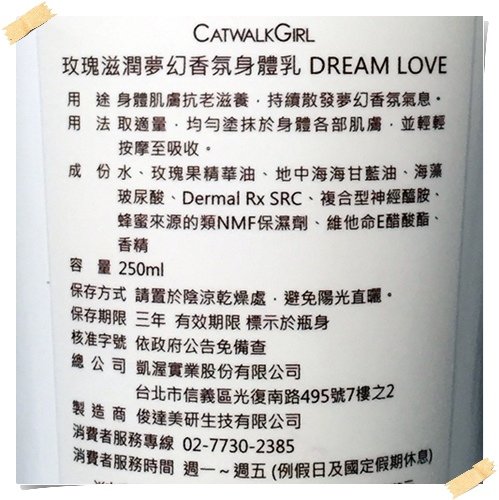 CATWALKGIRL
玫瑰滋潤夢幻香氛身體乳 DREAM LOVE
用　途 身體肌膚抗老滋養，持續散發夢幻香氛氣息。
用　法 取適量，均勻塗抹於身體各部肌膚，並輕輕
按摩至吸收。
成　份 水、玫瑰果精華油、地中海海甘藍油、海藻
玻尿酸、Dermal Rx SRC、複合型神經醯胺、
蜂蜜來源的類NMF保濕劑、維他命E醋酸酯、
香精
容　量 250ml
保存方式 請置於陰涼乾燥處，避免陽光直曬。
保存期限 三年 有效期限 標示於瓶身
核准字號 依政府公告免備查
總 公 司 凱渥實業股份有限公司
台北市信義區光復南路495號7樓之2
製 造 商 俊達美研生技有限公司
消費者服務專線 02-7730-2385
消費者服務時間 週一～週五 (例假日及國定假期休息)